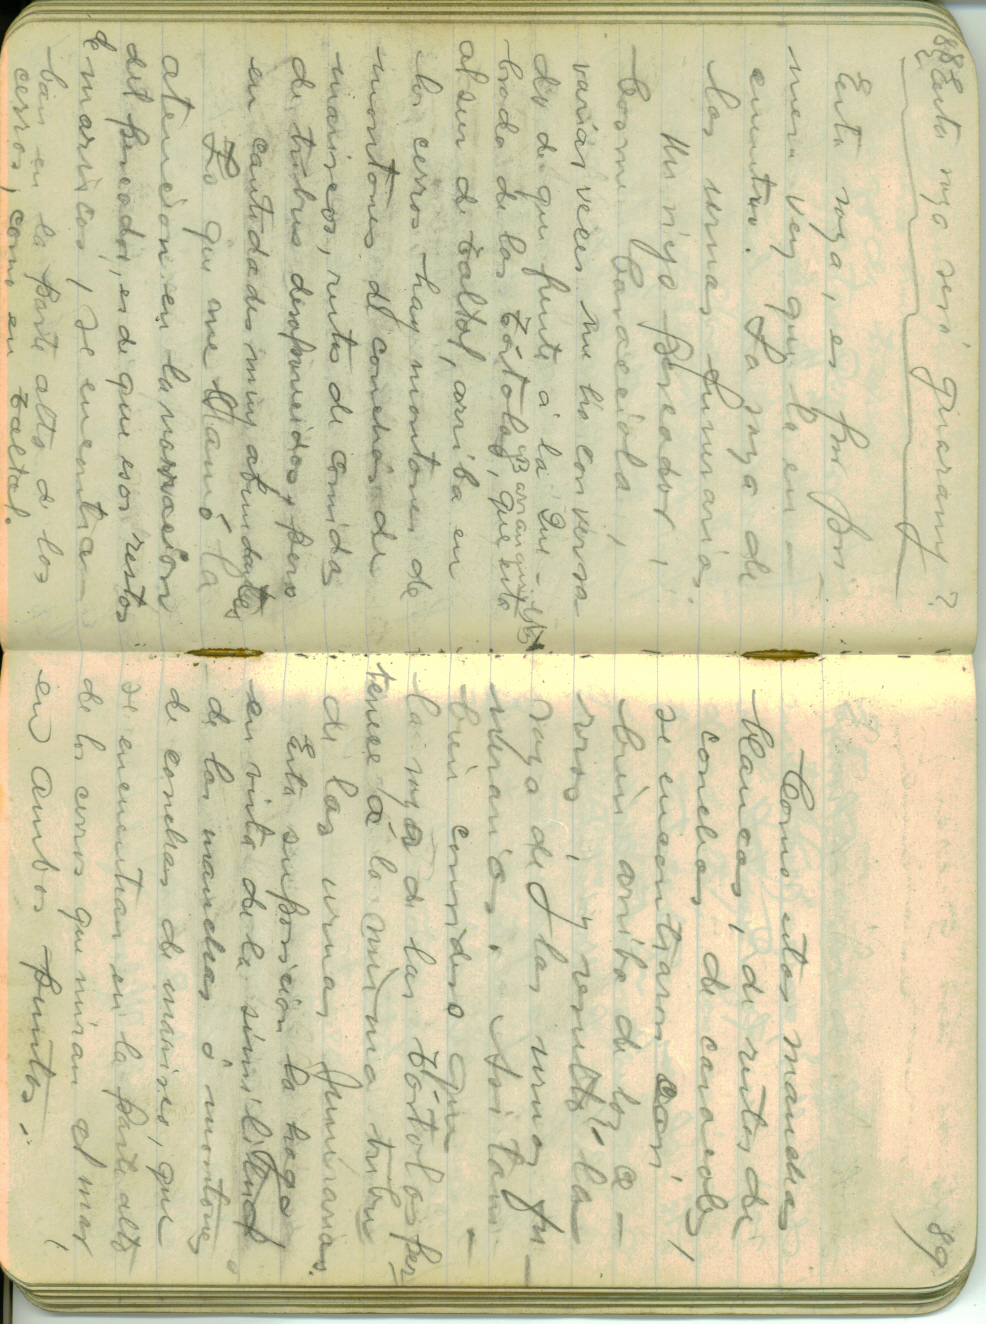 88
¿Esta roja será guarany?
Esta roja, es por pri-
mera vez que la en-
cuentro. La roja de
las urnas funerarias.
Un viejo pescador,
Cosme Caracciola,
varias veces me ha conversa
do de que frente á la Que-
brada de las Tórtolas, que está
al sur de Taltal, arriba en
los cerros hay montones de
montones de conchas de
mariscos, restos de comidas
de tribus desaparecidas, pero
en cantidades muy abundantes
Lo que me llamó la
atencion en la narracion
del pescador, es de que esos restos
de mariscos, se encuentran
bien en la parte alta de los
cerros, como en Taltal.
89
Como estas manchas
blancas, de restos de
conchas de caracoles,
se encontraron casi,
bien arriba de los ce-
rros, y resultó la
roja de las urnas fu-
nerarias. Asi tam-
bien considero que
la roja de las Tórtolas per-
tenece á la misma tribu
de las urnas funerarias.
Esta suposicion la hago
en vista de la similitud
de las manchas ó montones
de conchas de marisco, que
se encuentran en la parte alta
de los cerros que miran el mar,
en ambos puntos.